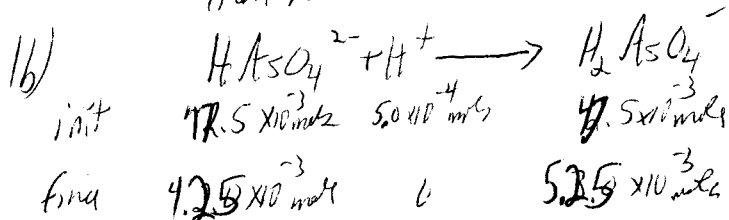 1b) HAsO₄²⁻ + H⁺ ⟶ H₂AsO₄⁻
init .5 x10⁻³ mols 5.0 x10⁻⁴ mols .5 x10⁻³ mols
final 4.25 x10⁻³ mols 0 5.25 x10⁻³ mols